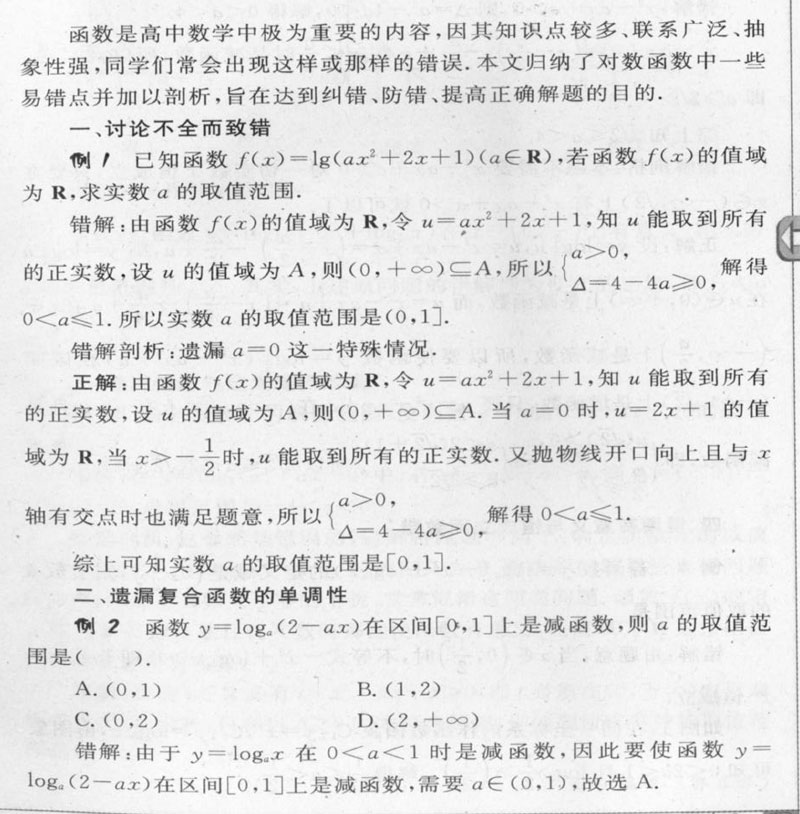 函数是高中数学中极为重要的内容,因其知识点较多、联系广泛、抽
象性强,同学们常会出现这样或那样的错误.本文归纳了对数函数中一些
易错点并加以剖析,旨在达到纠错、防错、提高正确解题的目的.
一、讨论不全而致错
例1 已知函数 f(x)=lg(ax²+2x+1)(a∈R),若函数 f(x)的值域
为 R,求实数 a 的取值范围.
错解:由函数 f(x)的值域为 R,令 u=ax²+2x+1,知 u 能取到所有
的正实数,设 u 的值域为 A,则(0,+∞)⊆A,所以{a>0, Δ=4-4a≥0, 解得
0<a≤1.所以实数 a 的取值范围是(0,1].
错解剖析:遗漏 a=0 这一特殊情况.
正解:由函数 f(x)的值域为 R,令 u=ax²+2x+1,知 u 能取到所有
的正实数,设 u 的值域为 A,则(0,+∞)⊆A.当 a=0 时,u=2x+1 的值
域为 R,当 x>-1/2时,u 能取到所有的正实数.又抛物线开口向上且与 x
轴有交点时也满足题意,所以{a>0, Δ=4-4a≥0, 解得 0<a≤1.
综上可知实数 a 的取值范围是[0,1].
二、遗漏复合函数的单调性
例2 函数 y=logₐ(2-ax)在区间[0,1]上是减函数,则 a 的取值范
围是( ).
A.(0,1) B.(1,2)
C.(0,2) D.(2,+∞)
错解:由于 y=logₐx 在 0<a<1 时是减函数,因此要使函数 y=
logₐ(2-ax)在区间[0,1]上是减函数,需要 a∈(0,1),故选 A.